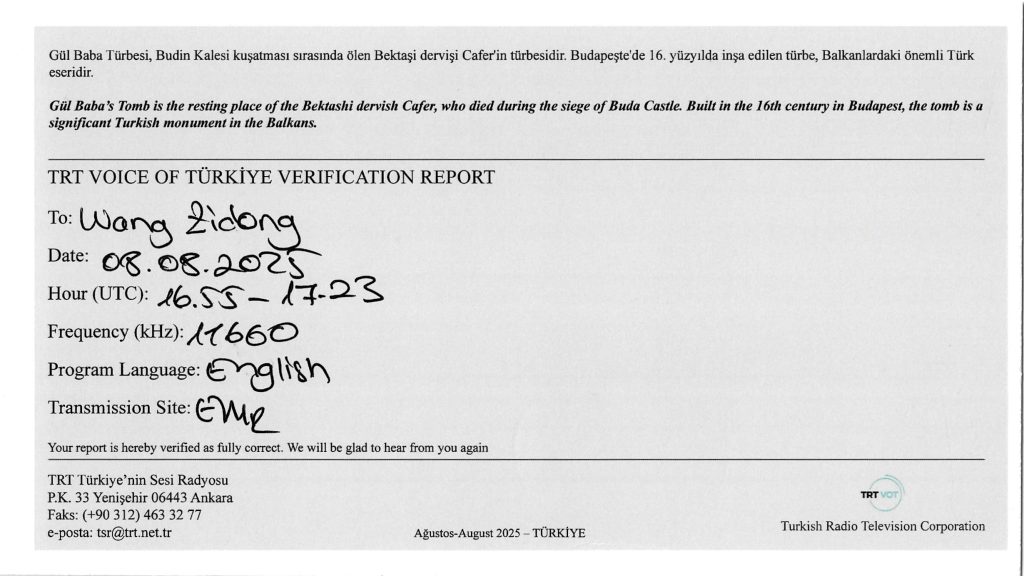 Gül Baba Türbesi, Budin Kalesi kuşatması sırasında ölen Bektaşi dervişi Cafer'in türbesidir. Budapeşte'de 16. yüzyılda inşa edilen türbe, Balkanlardaki önemli Türk
eseridir.
Gül Baba's Tomb is the resting place of the Bektashi dervish Cafer, who died during the siege of Buda Castle. Built in the 16th century in Budapest, the tomb is a
significant Turkish monument in the Balkans.
TRT VOICE OF TÜRKİYE VERIFICATION REPORT
To: Wang Zidong
Date: 08.08.2025
Hour (UTC): 16.55 – 17.23
Frequency (kHz): 11660
Program Language: English
Transmission Site: EMR
Your report is hereby verified as fully correct. We will be glad to hear from you again
TRT Türkiye'nin Sesi Radyosu
P.K. 33 Yenişehir 06443 Ankara
Faks: (+90 312) 463 32 77
e-posta: tsr@trt.net.tr
Ağustos-August 2025 – TÜRKİYE
TRT VOT
Turkish Radio Television Corporation